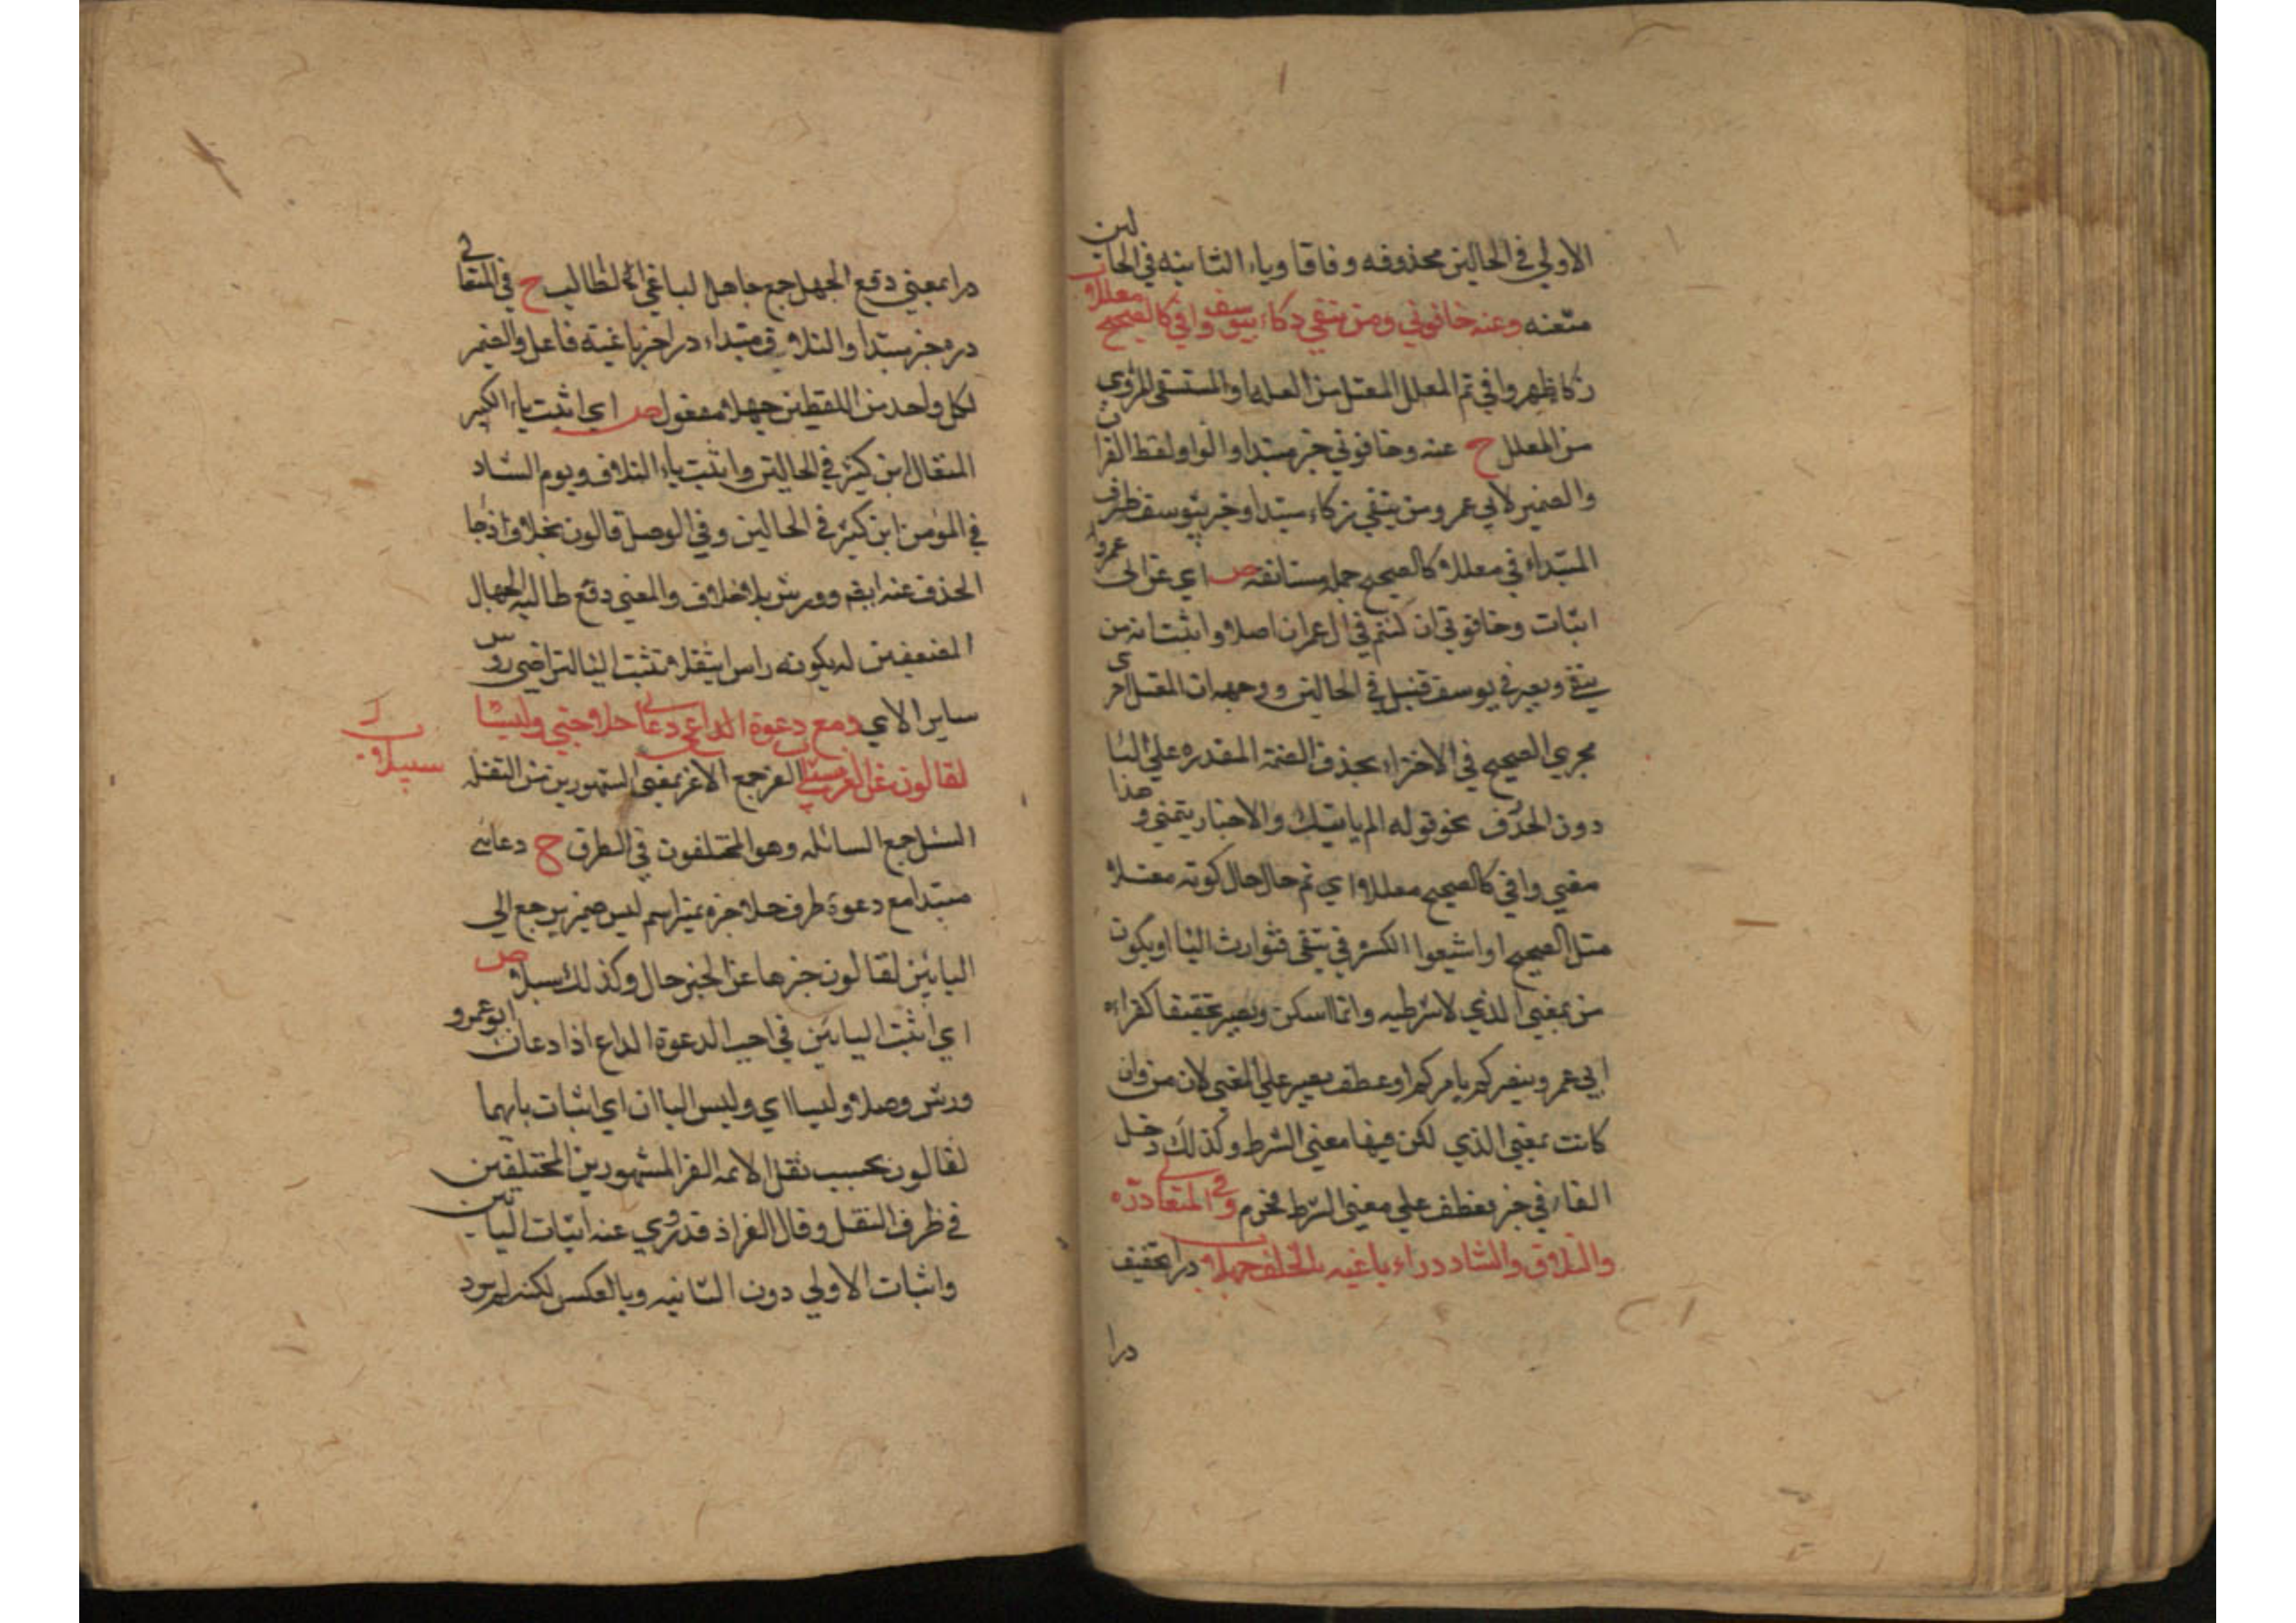 الاولي في الحالين محذوفه وفاقا وياء الثانيه في الحالين
مثعنه وعنه خافوني ومن يتقي زكاء بيوسف وافي كالصحيح معللاً
زكا ظهر وافي تم المعلل المعتل من العله او المستسقى المروي
من المعلل ح عنه وخافوني خبر مبتدا والواو لفظ القران
والضمير لابي عمرو ومن يتقي زكاء مبتدا وخبر بيوسف ظرف
المبتداء في معللا كالصحيح جمله مستانفه ص اي عن ابي عمرو
اثبات وخافوني ان كنتم في ال عمران اصلا واثبت انه من
يتقي ويصبر في يوسف قنبل في الحالين ووجهه ان المعتل
مجري الصحيح في الاجزاء بحذف الضمة المقدره علي اليا
دون الحذف نحو قوله الم ياتيك والاخبار يتمني وهذا
معني وافي كالصحيح معللا اي تم حال حال كونه معتلا
مثل الصحيح او اشبعوا الكسر في يتقى فتوارث اليا او يكون
من بمعني الذي لا شرطيه وانما اسكن ويصبر تخفيفا كقراءه
ابي عمرو ينصركم يامركم او عطف يصبر علي المعنى لان من وان
كانت بمعني الذي لكن فيها معني الشرط وكذلك دخل
الفاء في خبر فعطف علي معني الشرط فجزم وفي المتعالي دره
والتلاق والتناد دراء باغيه بالخلف جهلا درا بتخفيف
درا
درا بمعني دفع الجهل جمع جاهل الباغي الطالب ح في المتعالي
دره خبر مبتدا والتلاق مبتداء درا خبر باغيه فاعل والضمير
لكل واحد من اللفظين جهلا مفعول ص اي اثبت ياء الكبير
المتعال ابن كثير في الحالين واثبت ياء التلاق ويوم التناد
في المومن ابن كثير في الحالين وفي الوصل قالون بخلاف اذ جا
الحذف عنه ايضم وورش بلا خلاف والمعني دفع طالبه الجهال
المضعفين له بكونه راس اية فلا تثبت اليا لتراضي روس
ساير الاي ومع دعوة الداعي دعاني حلا جني وليسا
لقالون عن الغر سبلا الغر جمع الاغر بمعني المشهورين من النقله
السبل جمع السابله وهو المختلفون في الطرق ح دعاني
مبتدا مع دعوة ظرف حلا خبره تميز اسم ليس ضمير يرجع الي
اليائين لقالون خبرها عن الخبر حال وكذلك سبلا ص
اي اثبت اليائين في اجيب الدعوة الداع اذا دعان ابو عمرو
وورش وصلا وليسا اي وليس الياان اي اثبات يائهما
لقالون بحسب نقل الائمه الغر المشهورين المختلفين
في طرف النقل وقال الغر اذ قد روي عنه اثبات اليائين
واثبات الاولي دون الثانيه وبالعكس لكنه لم يرد